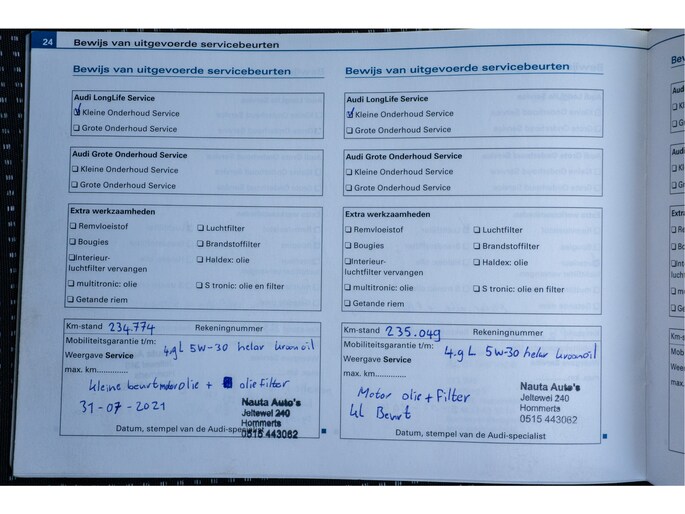 24 Bewijs van uitgevoerde servicebeurten
Bewijs van uitgevoerde servicebeurten
Audi LongLife Service
Kleine Onderhoud Service
Grote Onderhoud Service
Audi Grote Onderhoud Service
Kleine Onderhoud Service
Grote Onderhoud Service
Extra werkzaamheden
Remvloeistof
Luchtfilter
Bougies
Brandstoffilter
Interieur-
luchtfilter vervangen
Haldex: olie
multitronic: olie
S tronic: olie en filter
Getande riem
Km-stand 234.774 Rekeningnummer
Mobiliteitsgarantie t/m:
4.9 L 5W-30 helar kroonoil
Weergave Service
max. km.............
kleine beurt motor olie + olie filter
31-07-2021
Nauta Auto's
Jeltewei 240
Hommerts
0515 443062
Datum, stempel van de Audi-specialist
Bewijs van uitgevoerde servicebeurten
Audi LongLife Service
Kleine Onderhoud Service
Grote Onderhoud Service
Audi Grote Onderhoud Service
Kleine Onderhoud Service
Grote Onderhoud Service
Extra werkzaamheden
Remvloeistof
Luchtfilter
Bougies
Brandstoffilter
Interieur-
luchtfilter vervangen
Haldex: olie
multitronic: olie
S tronic: olie en filter
Getande riem
Km-stand 235.049 Rekeningnummer
Mobiliteitsgarantie t/m:
4.9 L 5W-30 helar kroonoil
Weergave Service
max. km.............
Motor olie + Filter
kl Beurt
Nauta Auto's
Jeltewei 240
Hommerts
0515 443062
Datum, stempel van de Audi-specialist